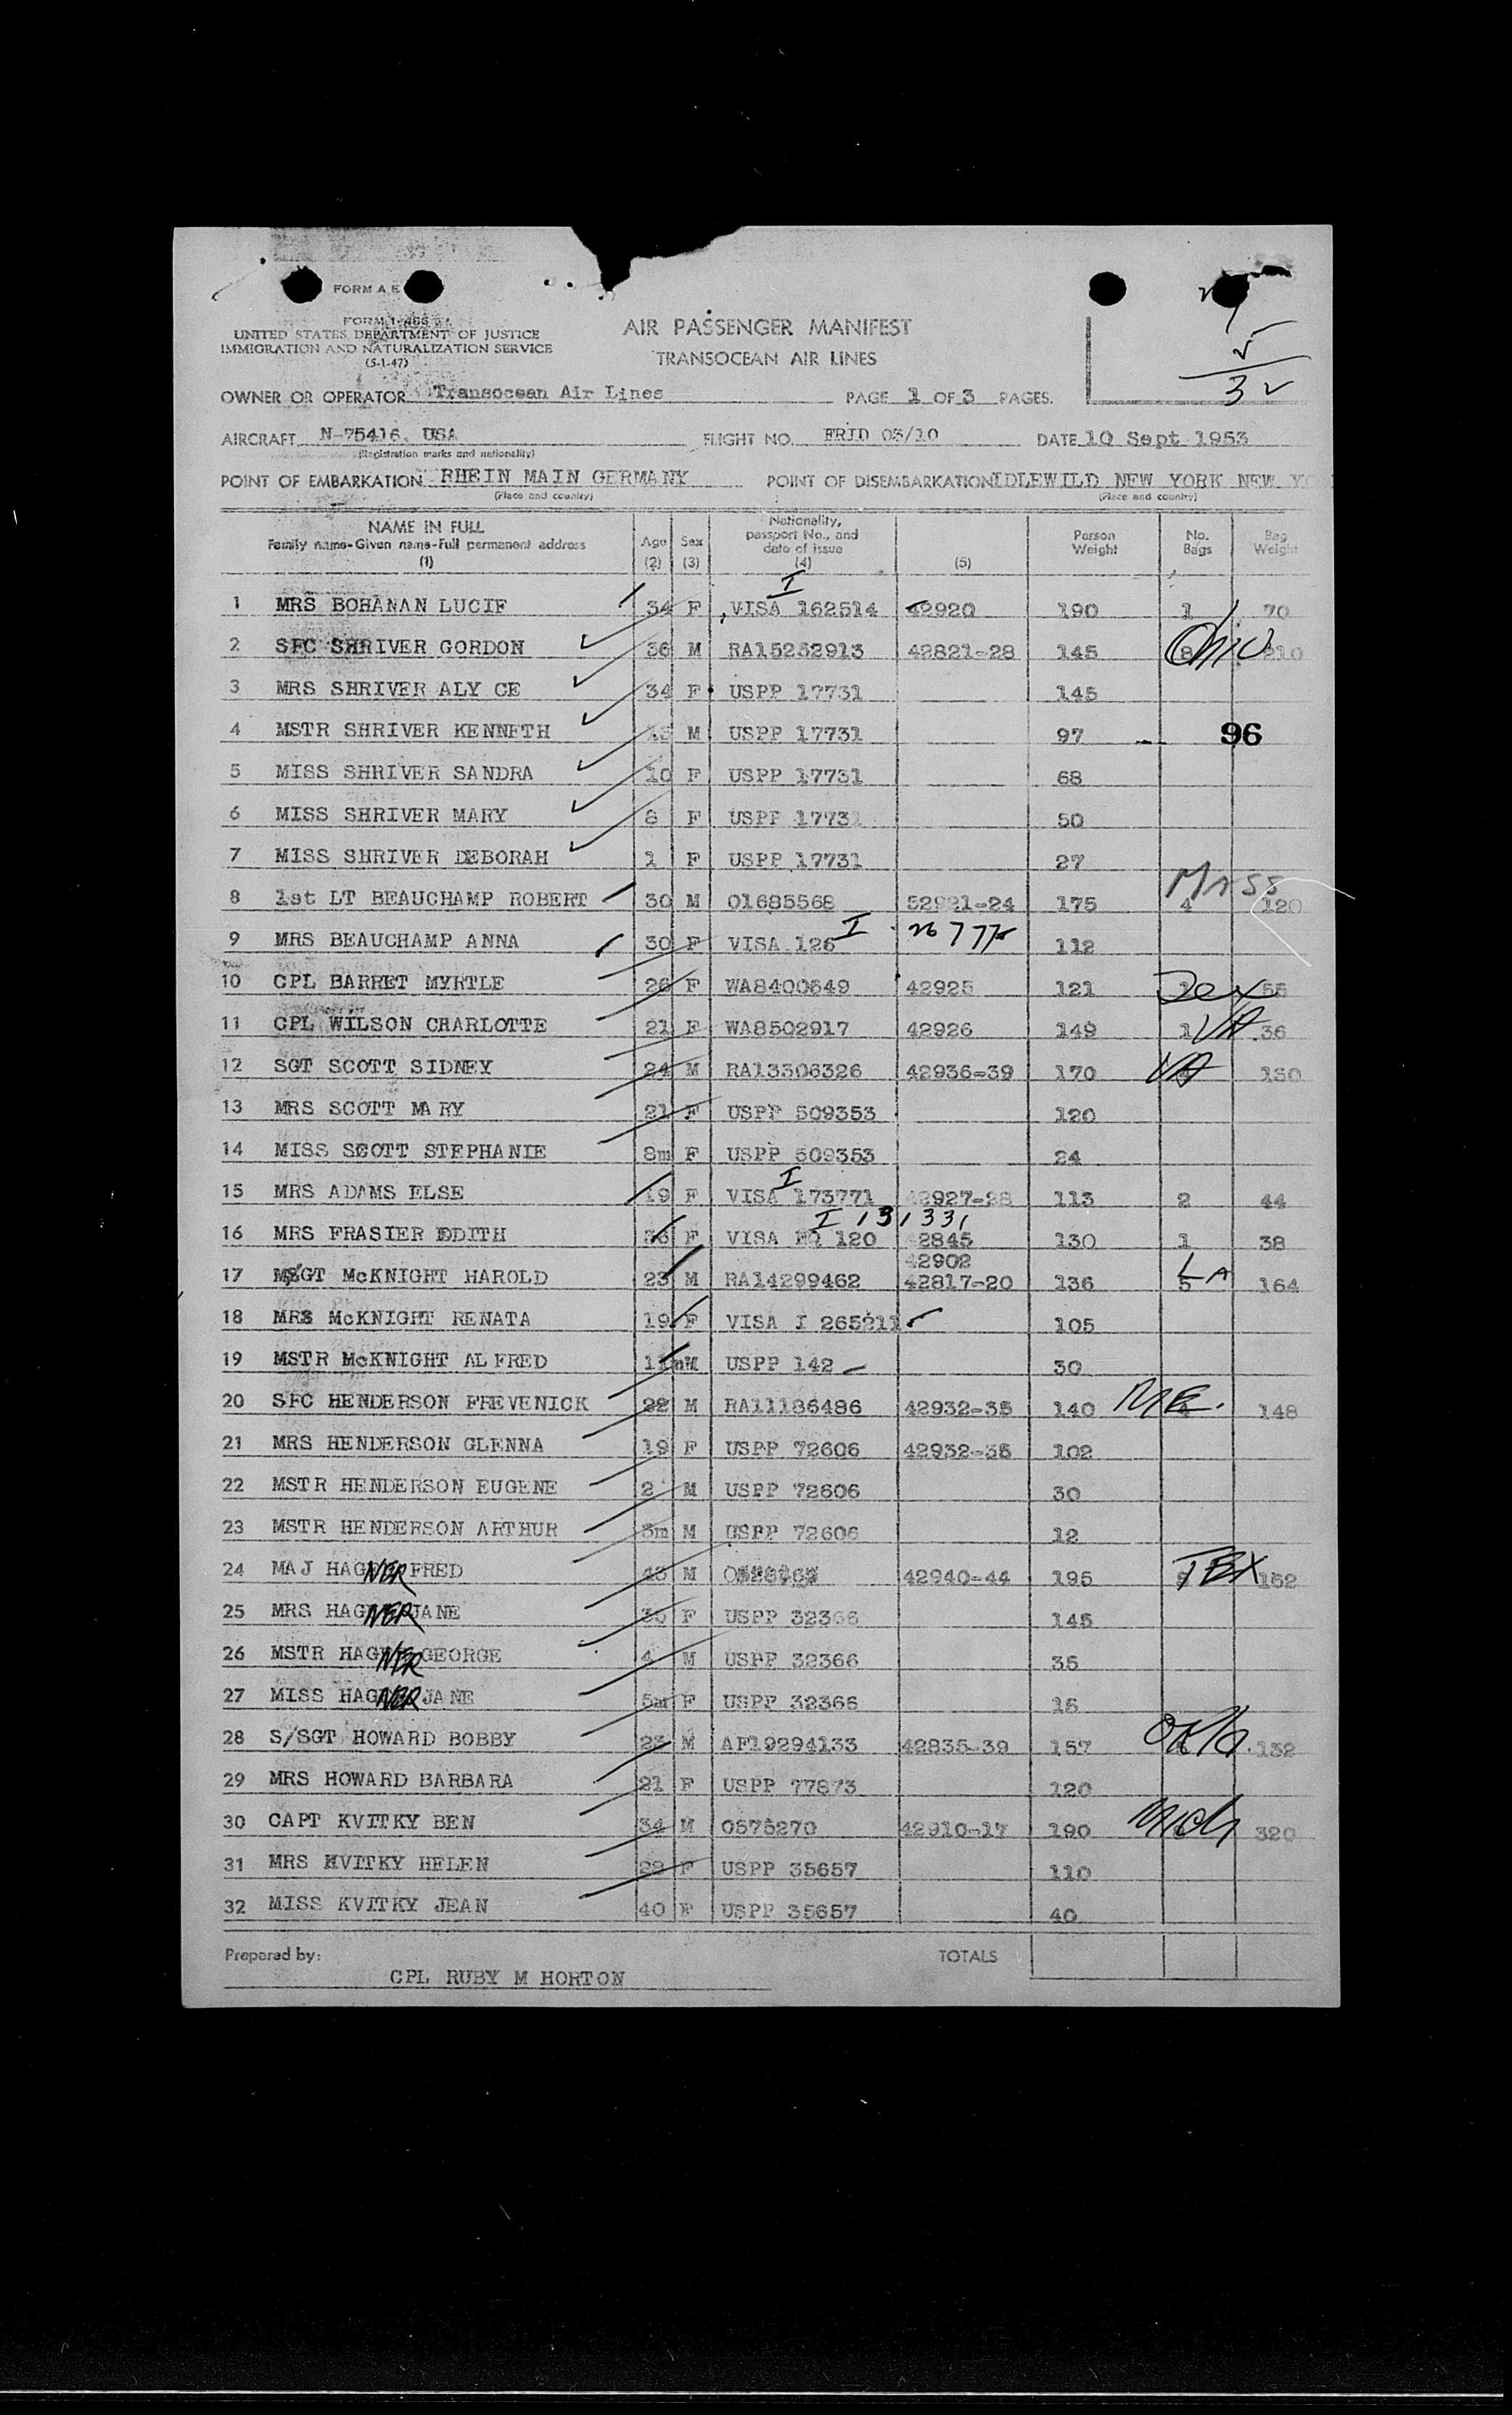 FORM A E
FORM I-466
UNITED STATES DEPARTMENT OF JUSTICE
IMMIGRATION AND NATURALIZATION SERVICE
(5-1-47)
AIR PASSENGER MANIFEST
TRANSOCEAN AIR LINES
OWNER OR OPERATOR Transocean Air Lines PAGE 1 OF 3 PAGES.
AIRCRAFT N-75416, USA FLIGHT NO. FRID 03/10 DATE 10 Sept 1953
(Registration marks and nationality)
POINT OF EMBARKATION RHEIN MAIN GERMANY POINT OF DISEMBARKATION IDLEWILD NEW YORK NEW
(Place and country) (Place and country)
NAME IN FULL Family name-Given name-Full permanent address (1) Age (2) Sex (3) Nationality, passport No., and date of issue (4) (5) Person Weight No. Bags Bag Weight
1 MRS BOHANAN LUCIE 34 F VISA I 162514 42920 190 1 70
2 SFC SHRIVER GORDON 36 M RA15252913 42821-28 145 8 Ohio 210
3 MRS SHRIVER ALY CE 34 F USPP 17731 145
4 MSTR SHRIVER KENNETH M USPP 17731 97 96
5 MISS SHRIVER SANDRA 10 F USPP 17731 68
6 MISS SHRIVER MARY 8 F USPP 17731 50
7 MISS SHRIVER DEBORAH 1 F USPP 17731 27
8 1st LT BEAUCHAMP ROBERT 30 M O1685568 52921-24 175 4 Mass 120
9 MRS BEAUCHAMP ANNA 30 F VISA 126 I 112
10 CPL BARRET MYRTLE 26 F WA8400549 42925 121 Tex 55
11 CPL WILSON CHARLOTTE 21 F WA8502917 42926 149 1 VA 36
12 SGT SCOTT SIDNEY 24 M RA13306326 42936-39 170 VA 130
13 MRS SCOTT MARY 21 F USPP 509353 120
14 MISS SCOTT STEPHANIE 8m F USPP 509353 24
15 MRS ADAMS ELSE 19 F VISA I 173771 42927-28 113 2 44
I 131331
16 MRS FRASIER EDITH 36 F VISA NQ 120 42845 130 1 38
42902
17 MSGT McKNIGHT HAROLD 23 M RA14299462 42817-20 136 5 LA 164
18 MRS McKNIGHT RENATA 19 F VISA I 265211 105
19 MSTR McKNIGHT ALFRED 11m M USPP 142 30
20 SFC HENDERSON FREVENICK 22 M RA11186486 42932-35 140 ME. 148
21 MRS HENDERSON GLENNA 19 F USPP 72606 42932-35 102
22 MSTR HENDERSON EUGENE 2 M USPP 72606 30
23 MSTR HENDERSON ARTHUR 3m M USPP 72606 12
24 MAJ HAGNER FRED 43 M 42940-44 195 TEX 152
25 MRS HAGNER JANE F USPP 32366 145
26 MSTR HAGNER GEORGE 4 M USPP 32366 35
27 MISS HAGNER JANE 5m F USPP 32366 16
28 S/SGT HOWARD BOBBY 23 M AF19294133 42835-39 157 Okla. 132
29 MRS HOWARD BARBARA 21 F USPP 77873 120
30 CAPT KVITKY BEN 34 M O575270 42910-17 190 Mich 320
31 MRS KVITKY HELEN F USPP 35657 110
32 MISS KVITKY JEAN 40 F USPP 35657 40
Prepared by: CPL RUBY M HORTON TOTALS